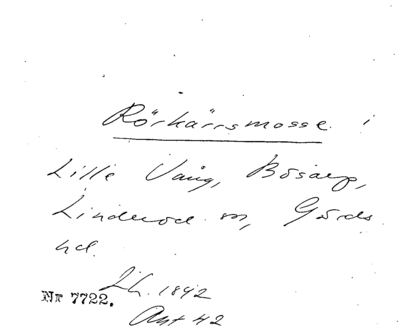 Rörkärrsmosse i
Lille Vång, Bosarp,
Linderöd sn, Gärds
hd.
Lh. 1842
Nr 7722.
Akt 42